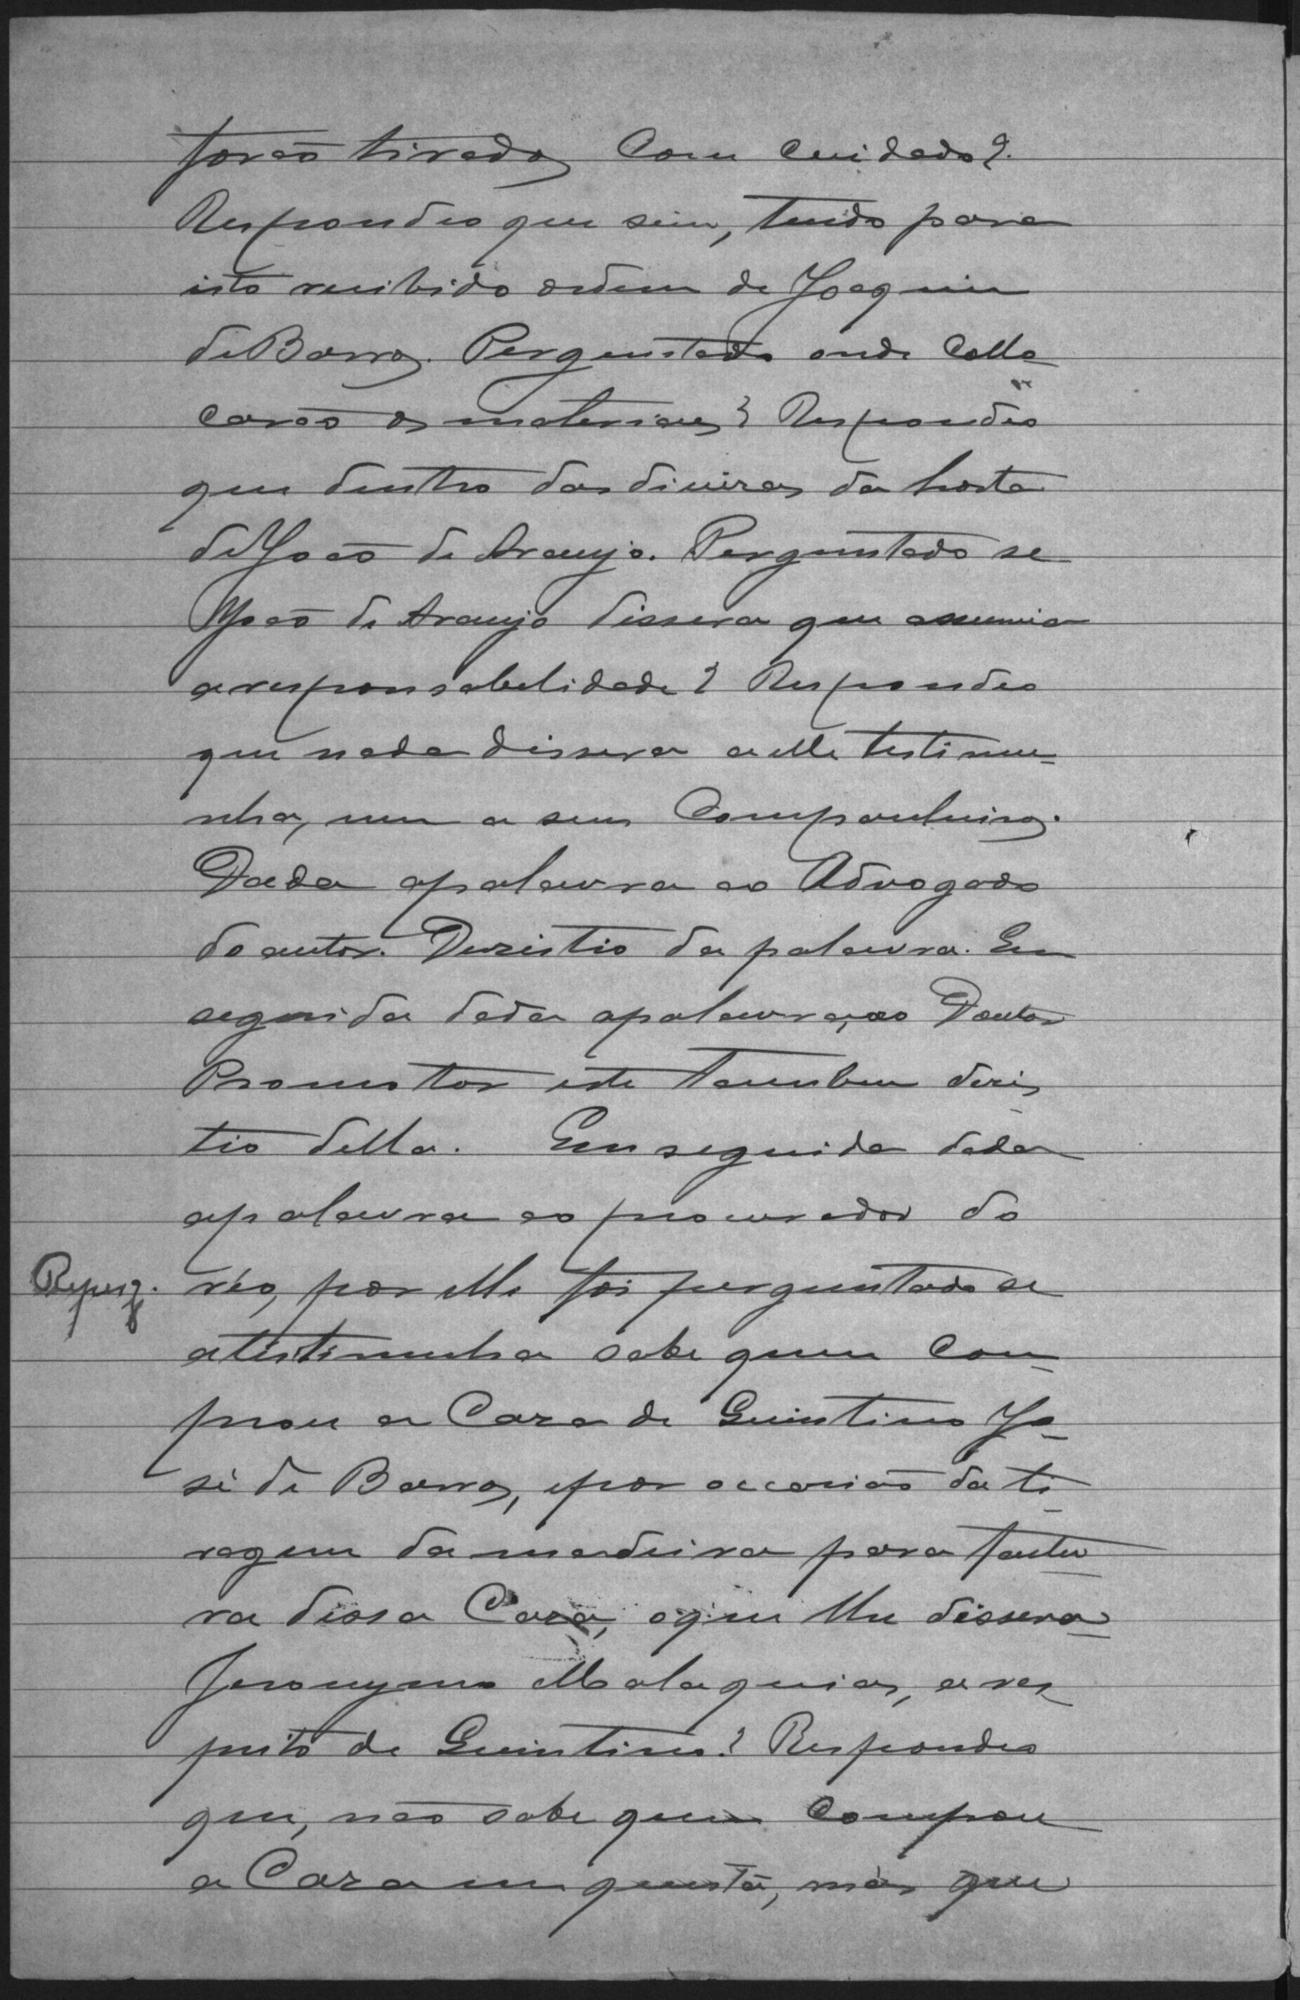 forão tirados com cuidado?
Respondeo que sim, tendo para
isto recibido ordem de Joaquim
de Barros. Perguntado onde collo-
carão os materiaes? Respondeo
que dentro das divizas da horta
de João de Araujo. Perguntado se
João de Araujo dissera que assumia
a responsabelidade? Respondeo
que nada dissera a elle testimu-
nha, nem a seus companheiros.
Dada apalavra ao Advogado
do autor. Dezistio da palavra. Em
seguida dada apalavra, ao Doutor
Promotor este tambem dezis
tio della. Em seguida dada
apalavra ao procurador do
Reperg. réo, por elle foi perguntado se
atestimunha sabe quem com-
prou a Caza de Quintino Jo-
sé de Barros, e por occasião da ti-
ragem da madeira para fatu
ra dessa Caza, o que lhe dissera
Jeronymo Malaquias, a res
peito de Quintino? Respondeo
que, não sabe quem comprou
a Caza em questã, mas que